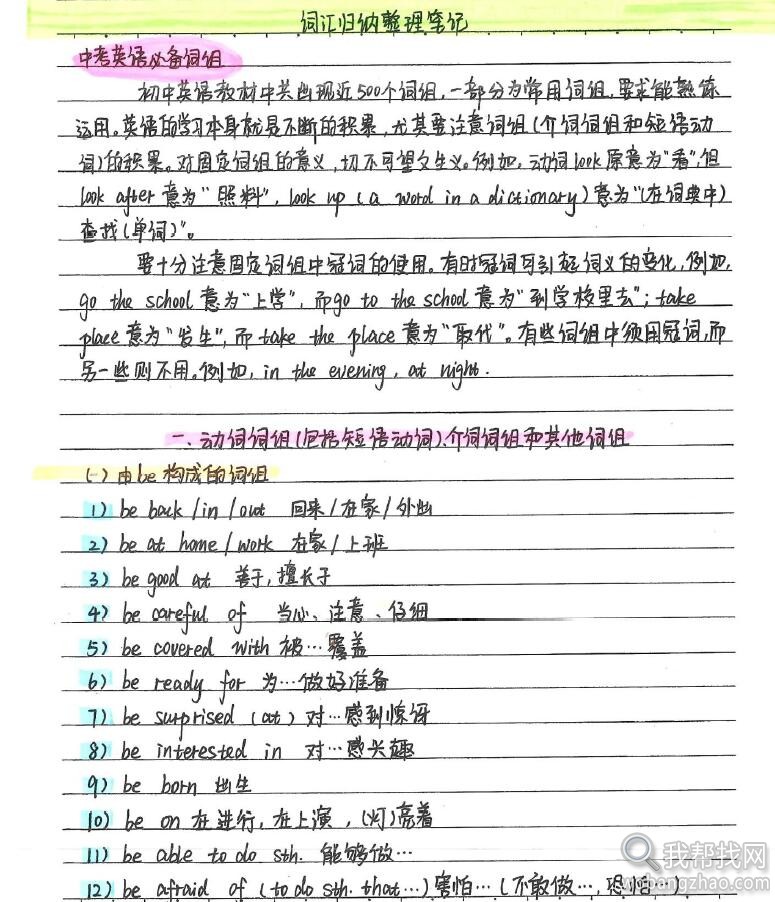 词汇归纳整理笔记
中考英语必备词组
初中英语教材中共出现近500个词组,一部分为常用词组,要求能熟练
运用。英语的学习本身就是不断的积累,尤其要注意词组(介词词组和短语动
词)的积累。对固定词组的意义,切不可望文生义。例如,动词look原意为"看",但
look after意为"照料",look up (a word in a dictionary)意为"(在词典中)
查找(单词)"。
要十分注意固定词组中冠词的使用。有时冠词可引起词义的变化,例如,
go the school意为"上学",而go to the school意为"到学校里去";take
place意为"发生",而take the place意为"取代"。有些词组中须用冠词,而
另一些则不用。例如,in the evening, at night.
一、动词词组(包括短语动词)、介词词组和其他词组
(一)由be构成的词组
1) be back/in/out 回来/在家/外出
2) be at home/work 在家/上班
3) be good at 善于,擅长于
4) be careful of 当心、注意、仔细
5) be covered with 被…覆盖
6) be ready for 为…做好准备
7) be surprised (at) 对…感到惊讶
8) be interested in 对…感兴趣
9) be born 出生
10) be on 在进行,在上演,(灯)亮着
11) be able to do sth. 能够做…
12) be afraid of (to do sth. that…) 害怕…(不敢做…,恐怕…)
我帮找网
wobangzhao.com